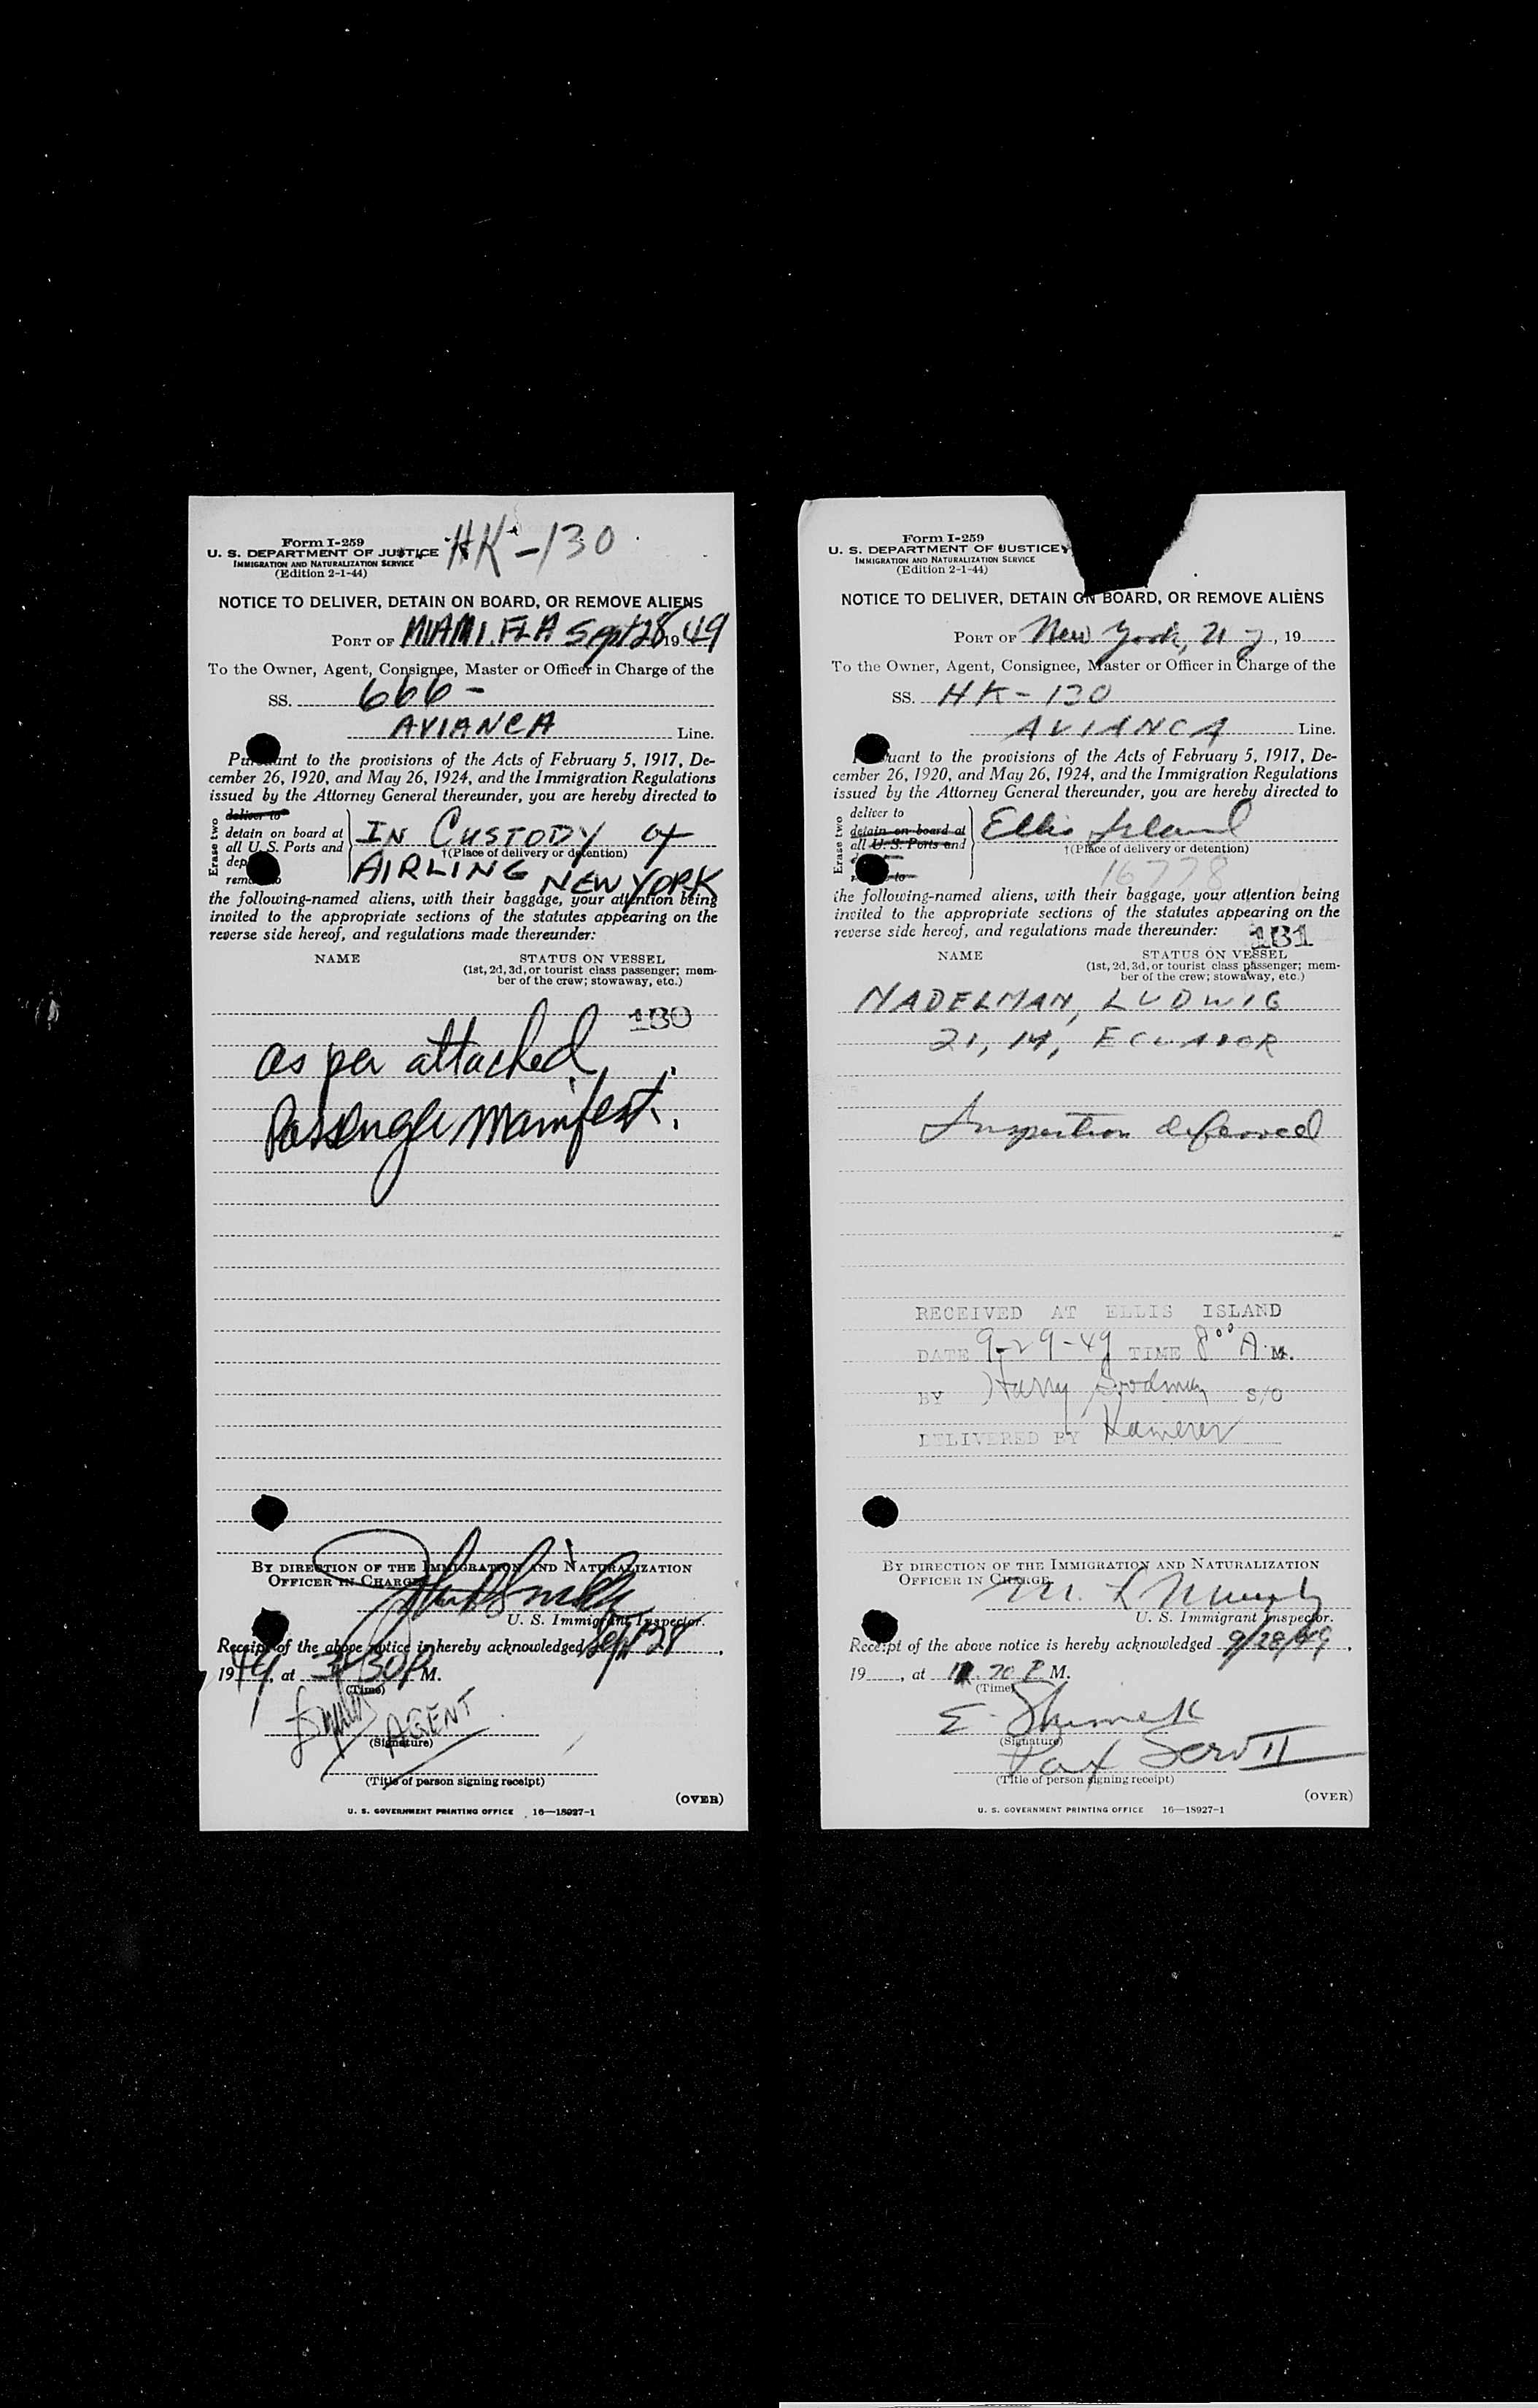 Form I-259
U. S. DEPARTMENT OF JUSTICE
IMMIGRATION AND NATURALIZATION SERVICE
(Edition 2-1-44)
HK-130
NOTICE TO DELIVER, DETAIN ON BOARD, OR REMOVE ALIENS
PORT OF MIAMI. FLA Sept 28 1949
To the Owner, Agent, Consignee, Master or Officer in Charge of the
SS. 666-
AVIANCA Line.
Pursuant to the provisions of the Acts of February 5, 1917, De-
cember 26, 1920, and May 26, 1924, and the Immigration Regulations
issued by the Attorney General thereunder, you are hereby directed to
Erase two
deliver to
detain on board at
all U. S. Ports and
IN CUSTODY of
†(Place of delivery or detention)
AIRLINE NEW YORK
the following-named aliens, with their baggage, your attention being
invited to the appropriate sections of the statutes appearing on the
reverse side hereof, and regulations made thereunder:
NAME STATUS ON VESSEL
(1st, 2d, 3d, or tourist class passenger; mem-
ber of the crew; stowaway, etc.)
130
as per attached
Passenger Manifest.
BY DIRECTION OF THE IMMIGRATION AND NATURALIZATION
OFFICER IN CHARGE
U. S. Immigrant Inspector.
Receipt of the above notice is hereby acknowledged Sept 28,
1949, at 3:30 P M.
(Time)
AGENT
(Signature)
(Title of person signing receipt)
(OVER)
U. S. GOVERNMENT PRINTING OFFICE 16—18927-1
Form I-259
U. S. DEPARTMENT OF JUSTICE
IMMIGRATION AND NATURALIZATION SERVICE
(Edition 2-1-44)
NOTICE TO DELIVER, DETAIN ON BOARD, OR REMOVE ALIENS
PORT OF New York, n y, 19
To the Owner, Agent, Consignee, Master or Officer in Charge of the
SS. HK-130
AVIANCA Line.
Pursuant to the provisions of the Acts of February 5, 1917, De-
cember 26, 1920, and May 26, 1924, and the Immigration Regulations
issued by the Attorney General thereunder, you are hereby directed to
Erase two
deliver to
detain on board at
all U. S. Ports and
Ellis Island
†(Place of delivery or detention)
16778
the following-named aliens, with their baggage, your attention being
invited to the appropriate sections of the statutes appearing on the
reverse side hereof, and regulations made thereunder:
131
NAME STATUS ON VESSEL
(1st, 2d, 3d, or tourist class passenger; mem-
ber of the crew; stowaway, etc.)
NADELMAN, LUDWIG
21, M, ECUADOR
Inspection deferred
RECEIVED AT ELLIS ISLAND
DATE 9-29-49 TIME 8⁰⁰ A.M.
BY Harry Goodman S/O
DELIVERED BY Kamerer
BY DIRECTION OF THE IMMIGRATION AND NATURALIZATION
OFFICER IN CHARGE
M. L Murphy
U. S. Immigrant Inspector.
Receipt of the above notice is hereby acknowledged 9/28/49,
19, at P M.
(Time)
E. Shimek
(Signature)
Pax Serv II
(Title of person signing receipt)
(OVER)
U. S. GOVERNMENT PRINTING OFFICE 16—18927-1